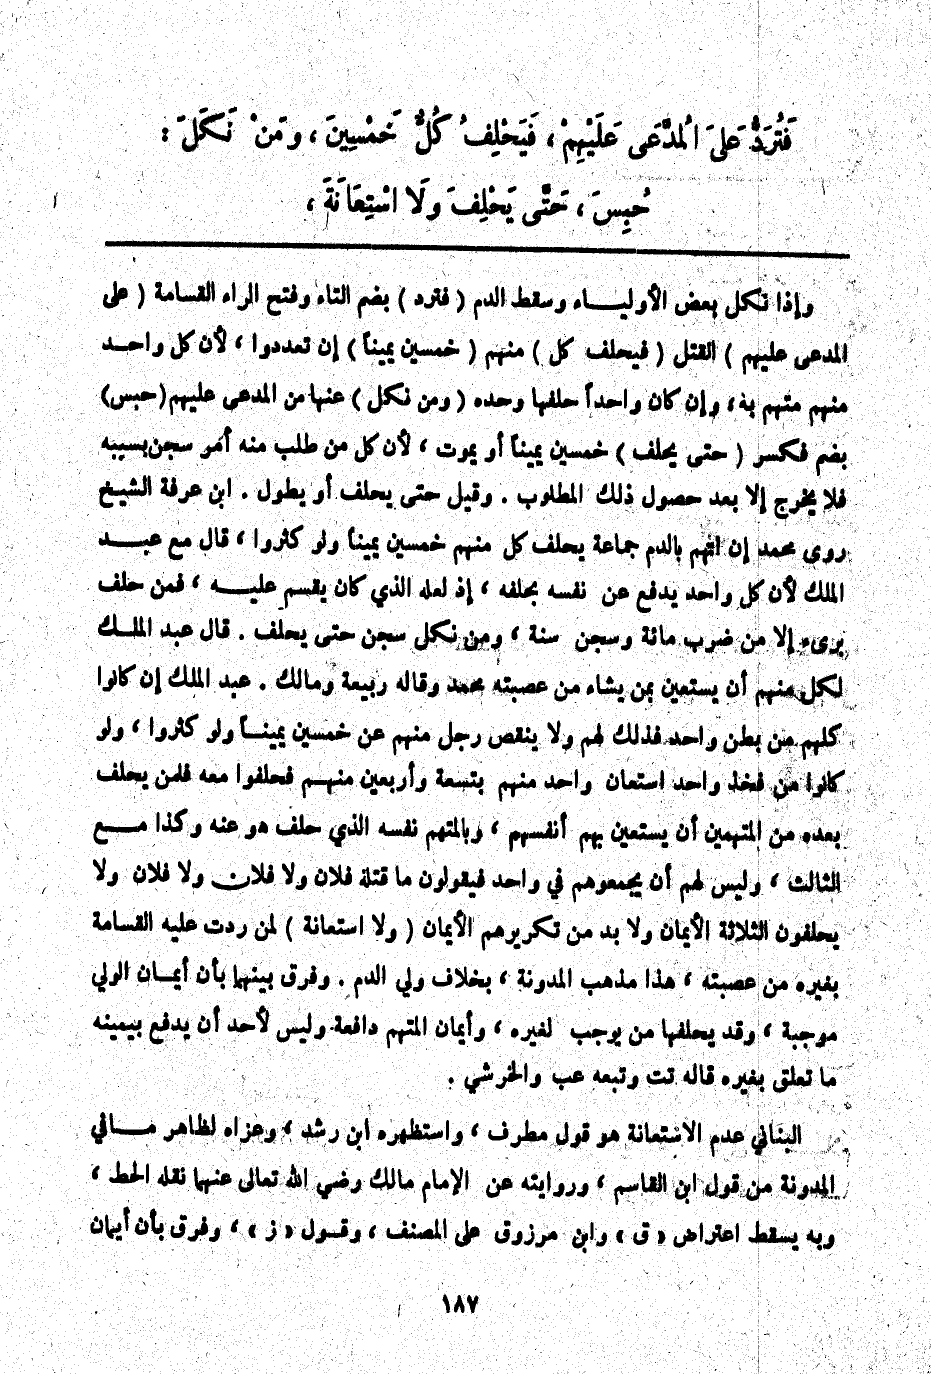 فَتُرَدُّ عَلَى الْمُدَّعَى عَلَيْهِمْ ، فَيَحْلِفُ كُلٌّ خَمْسِينَ ، وَمَنْ نَكَلَ :
حُبِسَ ، حَتَّى يَحْلِفَ وَلَا اسْتِعَانَةَ ،
وإذا نكل بعض الأوليــاء وسقط الدم ( فترد ) بضم التاء وفتح الراء القسامة ( على
المدعى عليهم ) القتل ( فيحلف كل ) منهم ( خمسين يميناً ) إن تعددوا ، لأن كل واحــد
منهم متهم به، وإن كان واحداً حلفها وحده ( ومن نكل ) عنها من المدعى عليهم(حبس)
بضم فكسر ( حتى يحلف ) خمسين يميناً أو يموت ، لأن كل من طلب منه أمر سجن بسببه
فلا يخرج إلا بعد حصول ذلك المطلوب . وقيل حتى يحلف أو يطول . ابن عرفة الشيخ
روى محمد إن اتهم بالدم جماعة يحلف كل منهم خمسين يميناً ولو كثروا ، قال مع عبــد
الملك لأن كل واحد يدفع عن نفسه بحلفه ، إذ لعله الذي كان يقسم عليــه ، فمن حلف
برىء إلا من ضرب مائة وسجن سنة ، ومن نكل سجن حتى يحلف . قال عبد الملــك
لكل منهم أن يستعين بمن يشاء من عصبته محمد وقاله ربيعة ومالك . عبد الملك إن كانوا
كلهم من بطن واحد فذلك لهم ولا ينقص رجل منهم عن خمسين يمينــاً ولو كثروا ، ولو
كانوا من فخذ واحد استعان واحد منهم بتسعة وأربعين منهــم فحلفوا معه فلمن يحلف
بعده من المتهمين أن يستعين بهم أنفسهم ، وبالمتهم نفسه الذي حلف هو عنه وكذا مــع
الثالث ، وليس لهم أن يجمعوهم في واحد فيقولون ما قتله فلان ولا فلان ولا فلان ولا
يحلفون الثلاثة الأيمان ولا بد من تكريرهم الأيمان ( ولا استعانة ) لمن ردت عليه القسامة
بغيره من عصبته ، هذا مذهب المدونة ، بخلاف ولي الدم . وفرق بينهما بأن أيمــان الولي
موجبة ، وقد يحلفها من يوجب لغيره ، وأيمان المتهم دافعة وليس لأحد أن يدفع بيمينه
ما تعلق بغيره قاله تت وتبعه عب والخرشي .
البناني عدم الاستعانة هو قول مطرف ، واستظهره ابن رشد ، وعزاه لظاهر مــا في
المدونة من قول ابن القاسم ، وروايته عن الإمام مالك رضي الله تعالى عنهما نقله الحط ،
وبه يسقط اعتراض « ق » وابن مرزوق على المصنف ، وقــول « ز » ، وفرق بأن أيمان
١٨٧